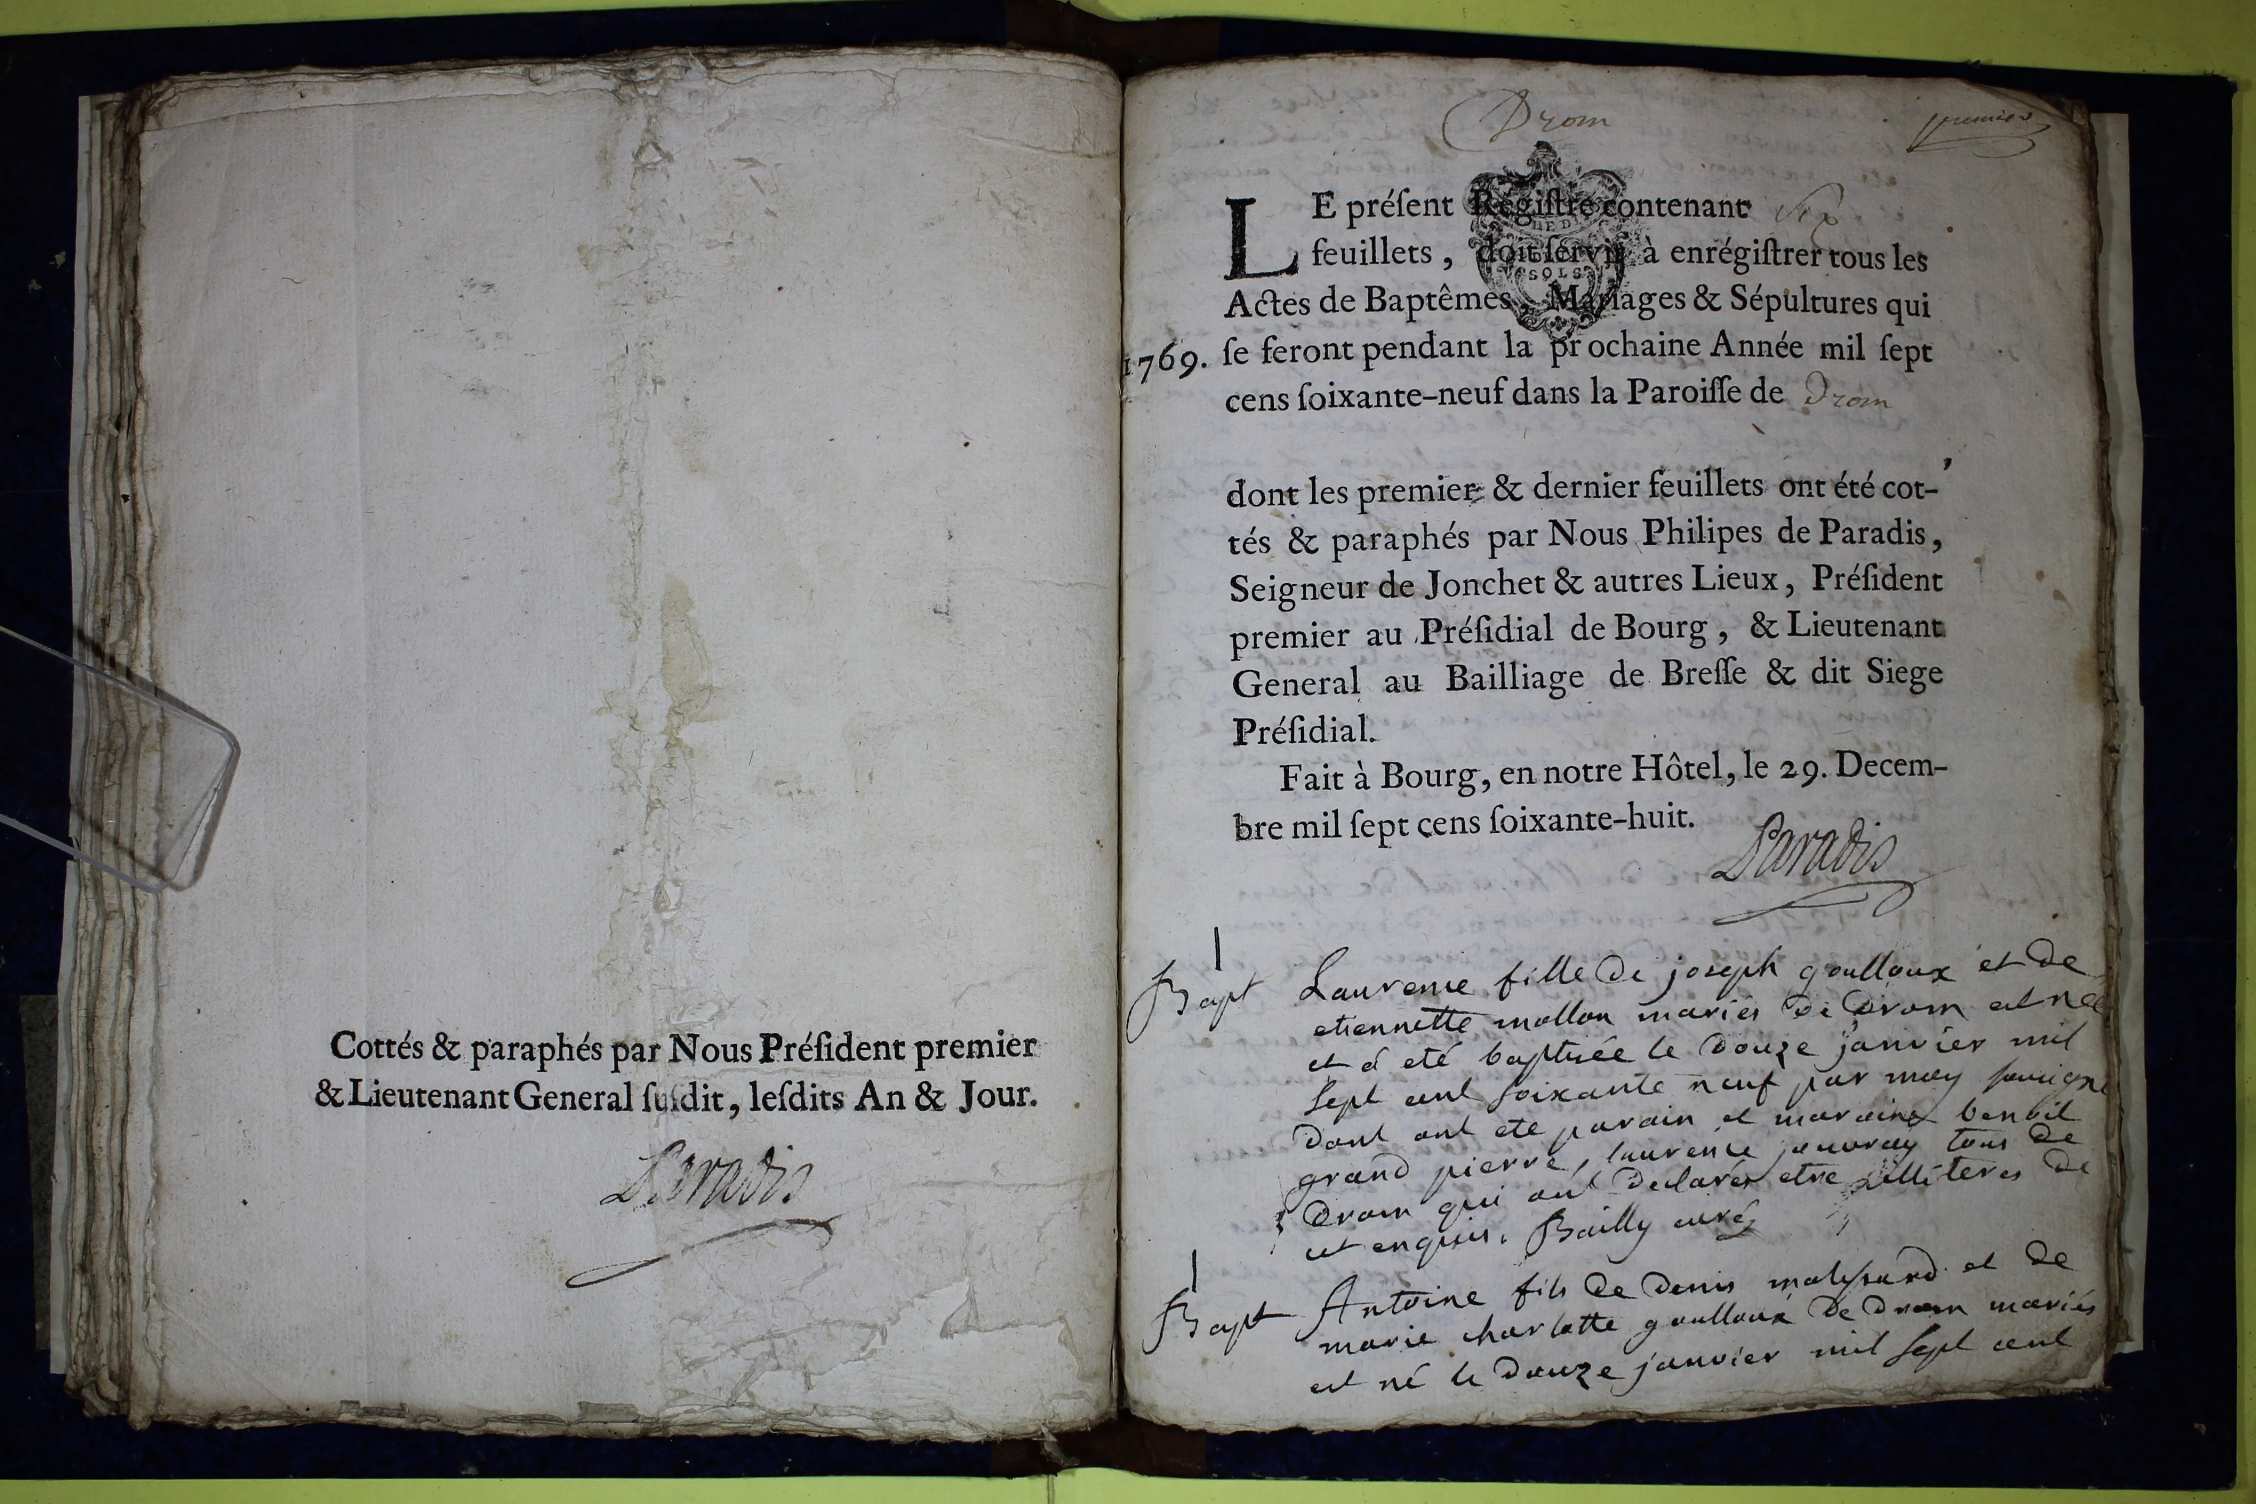 Cottés & paraphés par Nous Préſident premier
& Lieutenant General ſuſdit, leſdits An & Jour.
Paradis
Drom
premier
LE préſent Regiſtre contenant six
feuillets, doit ſervir à enrégiſtrer tous les
SOLS
Actes de Baptêmes, Mariages & Sépultures qui
1769. ſe feront pendant la prochaine Année mil ſept
cens ſoixante-neuf dans la Paroiſſe de Drom
dont les premier & dernier feuillets ont été cot-
tés & paraphés par Nous Philipes de Paradis,
Seigneur de Jonchet & autres Lieux, Préſident
premier au Préſidial de Bourg, & Lieutenant
General au Bailliage de Breſſe & dit Siege
Préſidial.
Fait à Bourg, en notre Hôtel, le 29. Decem-
bre mil ſept cens ſoixante-huit.
Paradis
1
Bapt Laurence fille de joseph goulloux et de
etiennette mollon mariés de Drom est née
et a eté baptisée le douze janvier mil
sept cent soixante neuf par moy soussigné
dont ont ete parain et maraine benoit
grand pierre, laurence tous de
Drom qui ont declarés etre illiteres de
ce enquis. Bailly curé
1
Bapt Antoine fils de denis et de
marie charlotte goulloux de drom mariés
est né le douze janvier mil sept cent